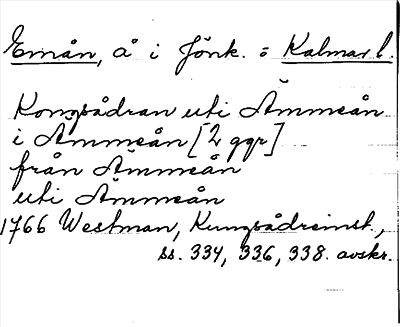 Emån, å i Jönk. o Kalmar l.
Kongsådran uti Ämmeån
i Ämmeån [2 ggr]
från Ämmeån
uti Ämmeån
1766 Westman, Kungsådreinst.,
ss. 334, 336, 338. avskr.